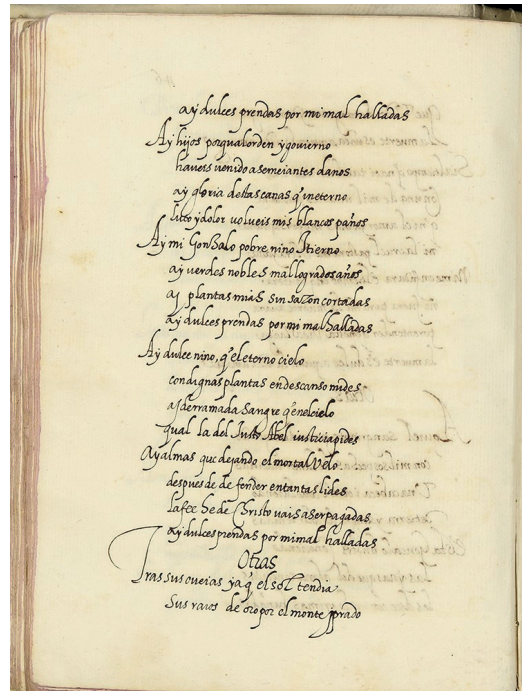 ay dulces prendas por mi mal halladas
Ay hijos por qual orden y govierno
haveis venido a semeiantes danos
ay gloria destas canas q̃ in eterno
luto y dolor volveis mis blancos paños
Ay mi Gonzalo pobre nino y tierno
ay verdes nobles mallogrados años
ay plantas mias sin sazon cortadas
ay dulces prendas por mi mal halladas
Ay dulce nino, q̃ el eterno cielo
con dignas plantas en descanso mides
ay derramada sangre q̃ en el cielo
qual la del Justo Abel iusticia pides
Ay almas que dejando el mortal velo
despues de de fender en tantas lides
la fee de Christo vais a ser pagadas
ay dulces prendas por mi mal halladas
Otras
Tras sus oveias ya q̃ el sol tendia
sus raios de oro por el monte prado